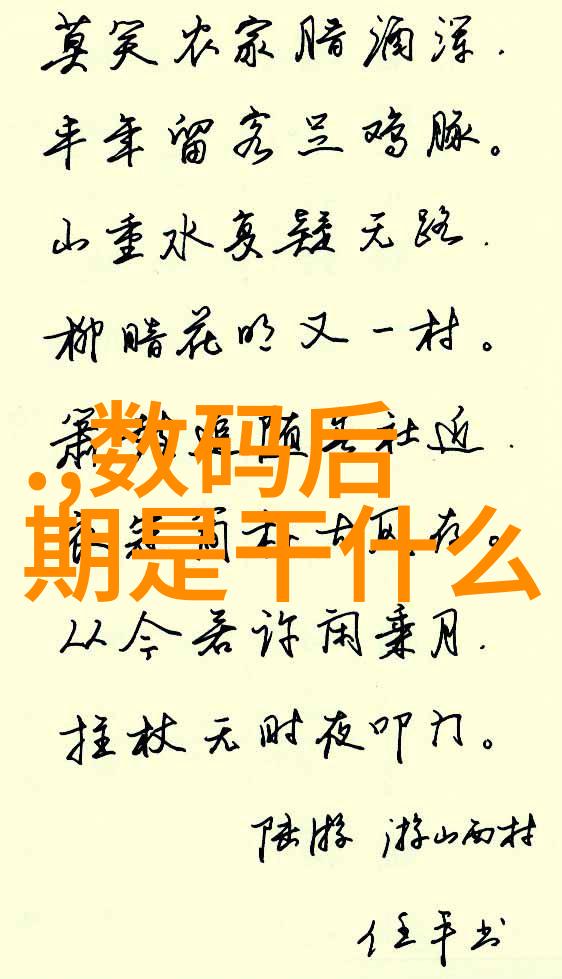 莫笑农家腊酒浑.
丰年留客足鸡豚。
山重水复疑无路.
柳暗花明又一村。
箫鼓追随春社近.
.,数码后
衣冠简朴古风存。
期是干什么
从今若许闲乘月.
拄杖无时夜叩门。
陆游 游山西村
任平书